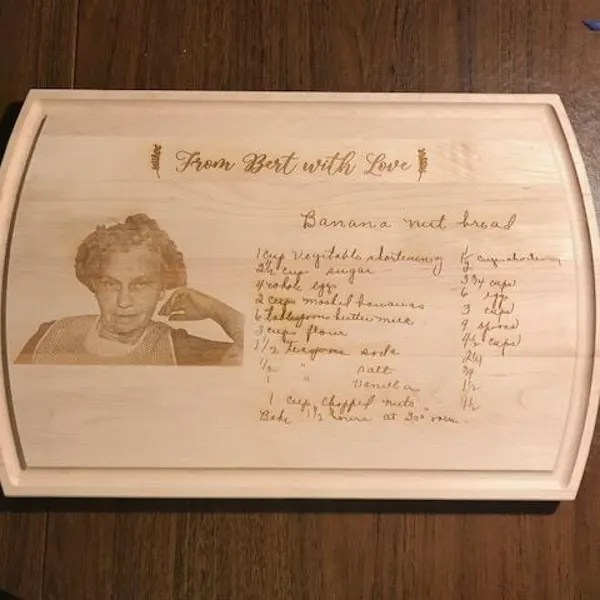 From Bert with Love
Banana nut bread
1 cup vegitable shortening 1 1/2 cups shortening
2 1/2 cup sugar 3 3/4 cups
4 whole eggs 6 eggs
2 cups mashed bananas 3 cups
6 tablespoon butter milk 9 spoons
3 cups flour 4 1/2 cups
1 1/2 teaspoons soda 2 1/4
1/2 " salt 3/4
1 " Vanilla 1 1/2
1 cup chopped nuts 1 1/2
Bake 1 1/2 hours at 300° oven